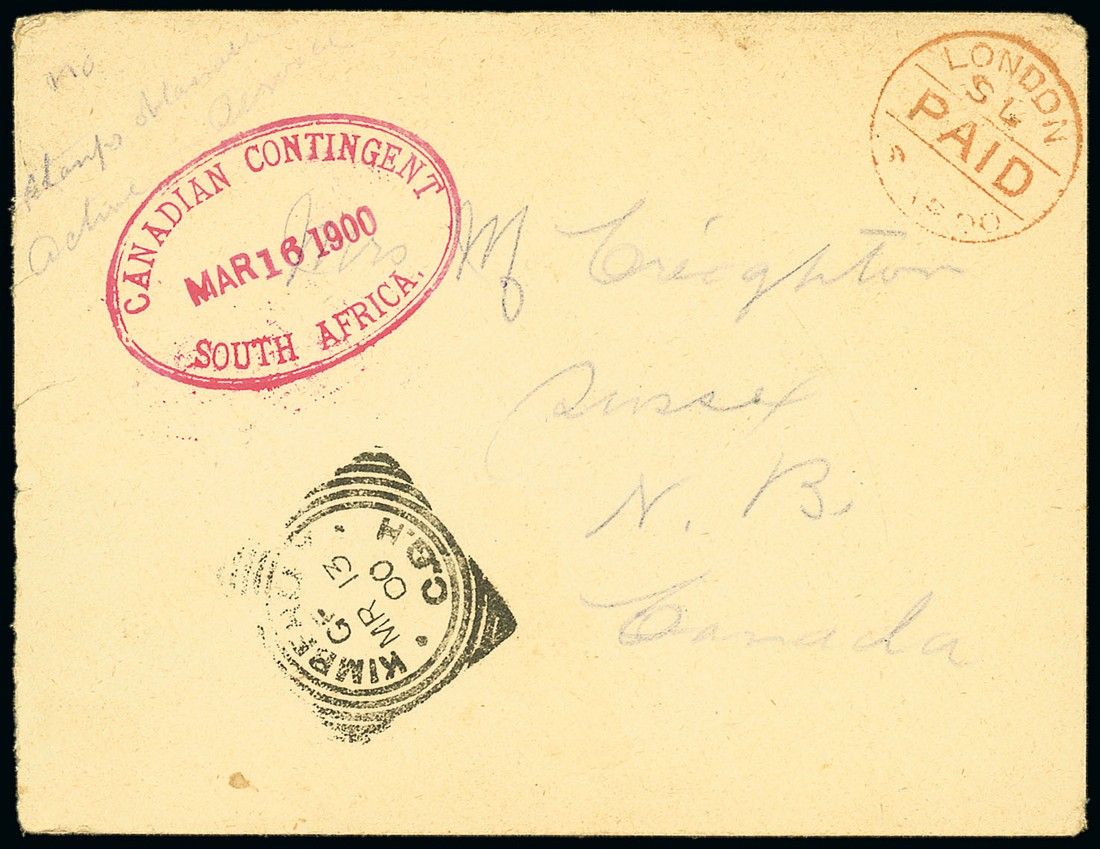 no
stamps obtainable
Active Service
CANADIAN CONTINGENT
MAR 16 1900
SOUTH AFRICA.
LONDON
PAID
1900
Mrs Mc Creighton
Sussex
N. B.
Canada
KIMBERLEY
MR 13
00
C.G.H